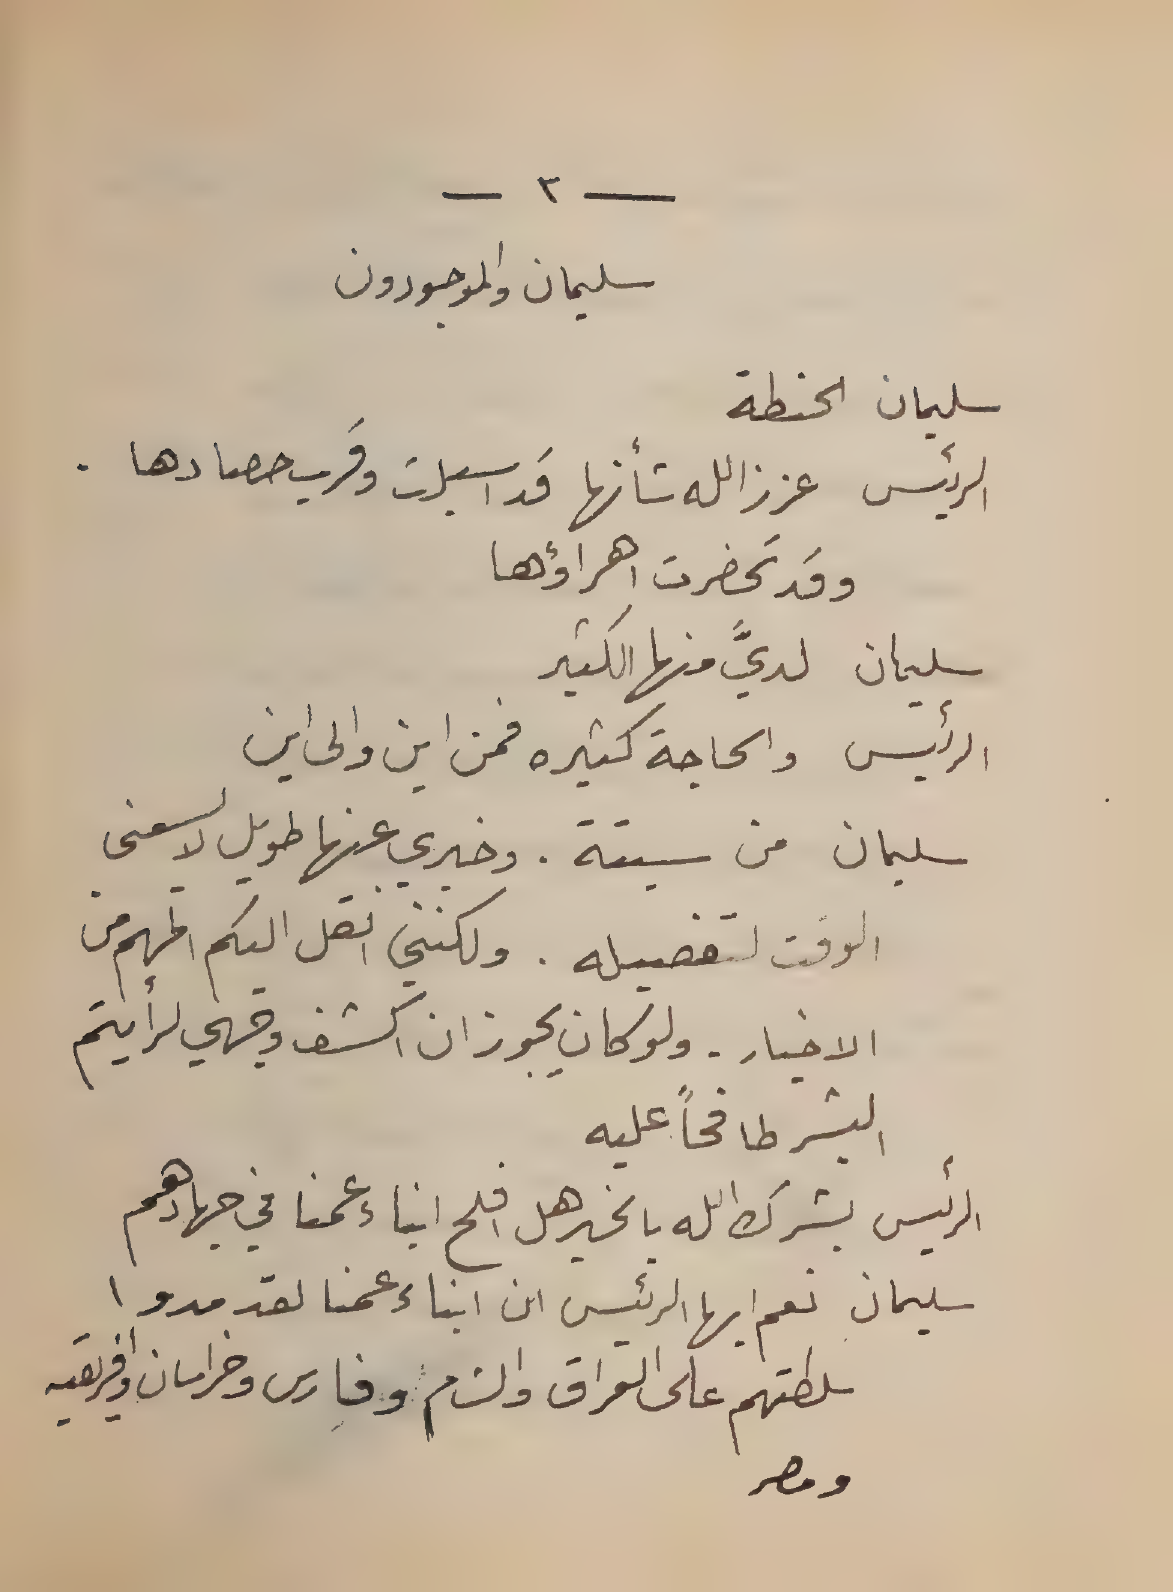 — ٣ —
سليمان والموجودون
سليمان الحنطة
الرئيس عزز الله شأنها قد اسبلت وقرب حصادها .
وقد تحضرت اهراؤها
سليمان لديَّ منها الكثير
الرئيس والحاجة كثيره فمن اين والى اين
سليمان من سبتة . وخبري عنها طويل لا يسعني
الوقت لتفصيله . ولكنني انقل اليكم المهم من
الاخبار . ولو كان يجوز ان اكشف وجهي لرأيتم
البشر طافحاً عليه
الرئيس بشرك الله بالخير هل افلح ابناء عمنا في جهادهم
سليمان نعم ايها الرئيس ان ابناء عمنا لقد مدوا
سلطتهم على العراق والشام وفارس وخراسان وافريقيه
ومصر